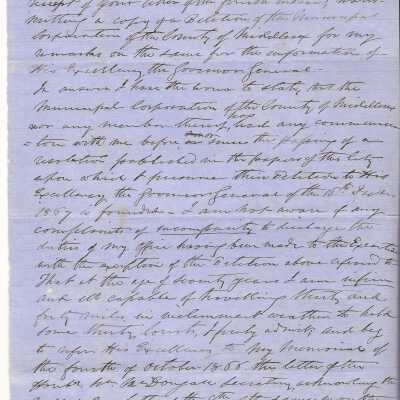 receipt of your letter of the instant, trans-
mitting a copy of a Petition of the Municipal
Corporation of the County of Middlesex for my
remarks on the same for the information of
His Excellency the Governor General.
In answer I have the honor to state, that the
Municipal Corporation of the County of Middlesex
nor any member thereof, has had any communica
=tion with me before, or since the passing of a
resolution published in the papers of this City
upon which I presume their Petition to His
Excellency, the Governor General of the 16th
1867 is founded - I am not aware of any
complaints of incompacity to discharge the
duties of my office having been made to the Executive
with the exception of the Petition above refered to
That at the age of seventy years I am infirm
and ill capable of travelling thirty and
forty miles in inclement weather to hold
some thirty Courts I freely admit, and beg
to refer His Excellency to my Memorial of
the fourth of October 1866 the letter of the
Honble Wm McDougall Secretary acknowledging the